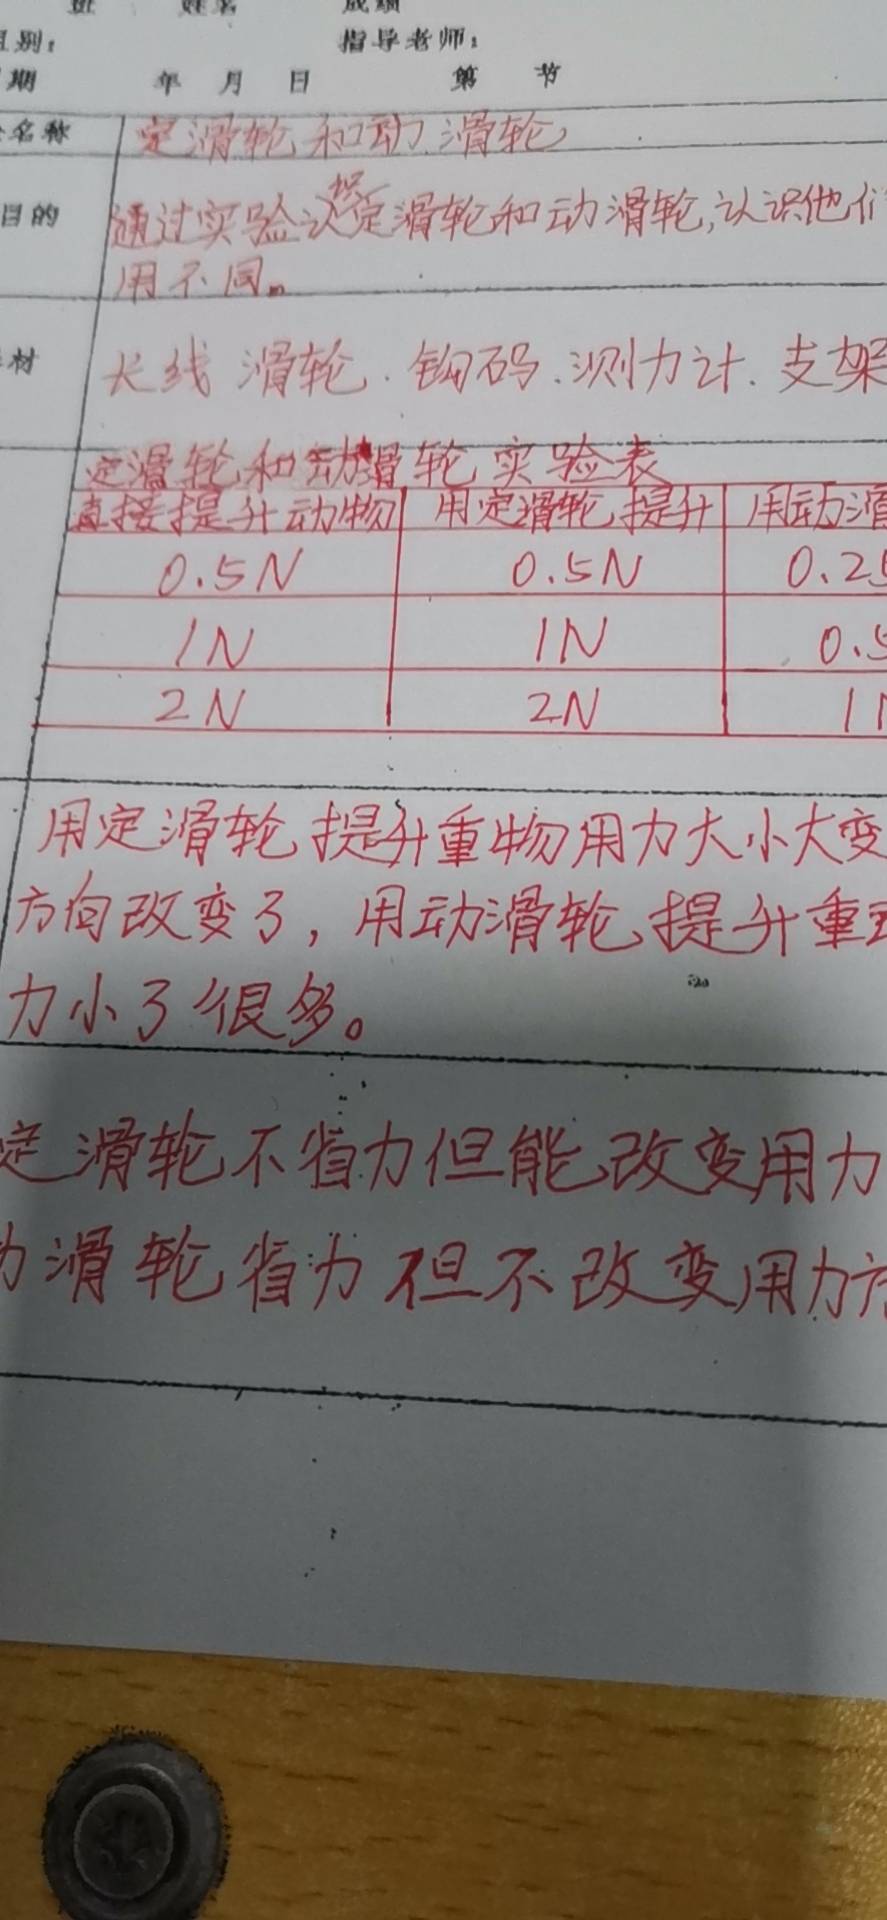 班 姓名 成绩
组别： 指导老师：
期 年 月 日 第 节
名称 定滑轮和动滑轮
目的 通过实验认识定滑轮和动滑轮,认识他们
用不同。
材 长线 滑轮.钩码.测力计.支架
定滑轮和动滑轮实验表
直接提升动物 用定滑轮提升 用动滑
0.5N 0.5N 0.25
1N 1N 0.5
2N 2N 1N
用定滑轮提升重物用力大小大变
方向改变了，用动滑轮提升重
力小了很多。
定滑轮不省力但能改变用力
动滑轮省力但不改变用力方